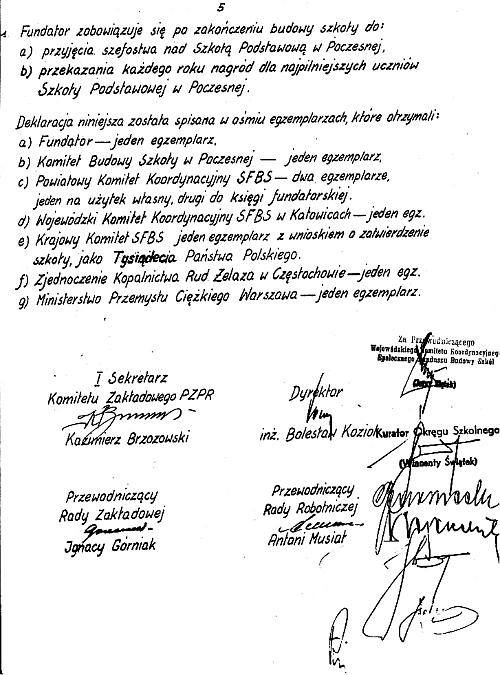 5
Fundator zobowiązuje się po zakończeniu budowy szkoły do:
a) przyjęcia szefostwa nad Szkołą Podstawową w Poczesnej,
b) przekazania każdego roku nagród dla najpilniejszych uczniów
Szkoły Podstawowej w Poczesnej.
Deklaracja niniejsza została spisana w ośmiu egzemplarzach, które otrzymali:
a) Fundator — jeden egzemplarz,
b) Komitet Budowy Szkoły w Poczesnej — jeden egzemplarz,
c) Powiatowy Komitet Koordynacyjny SFBS — dwa egzemplarze,
jeden na użytek własny, drugi do księgi fundatorskiej.
d) Wojewódzki Komitet Koordynacyjny SFBS w Katowicach — jeden egz.
e) Krajowy Komitet SFBS jeden egzemplarz z wnioskiem o zatwierdzenie
szkoły, jako Tysiąclecia Państwa Polskiego.
f) Zjednoczenie Kopalnictwa Rud Żelaza w Częstochowie — jeden egz.
g) Ministerstwo Przemysłu Ciężkiego Warszawa — jeden egzemplarz.
Za Przewodniczącego
Wojewódzkiego Komitetu Koordynacyjnego
Społecznego Funduszu Budowy Szkół
I Sekretarz
Komitetu Zakładowego PZPR
Kazimierz Brzozowski
Dyrektor
inż. Bolesław Kozioł
Kurator Okręgu Szkolnego
(Wincenty Świątek)
Przewodniczący
Rady Zakładowej
Ignacy Górniak
Przewodniczący
Rady Robotniczej
Antoni Musiał